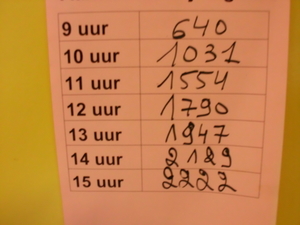 9 uur 640
10 uur 1031
11 uur 1554
12 uur 1790
13 uur 1947
14 uur 2129
15 uur 2222